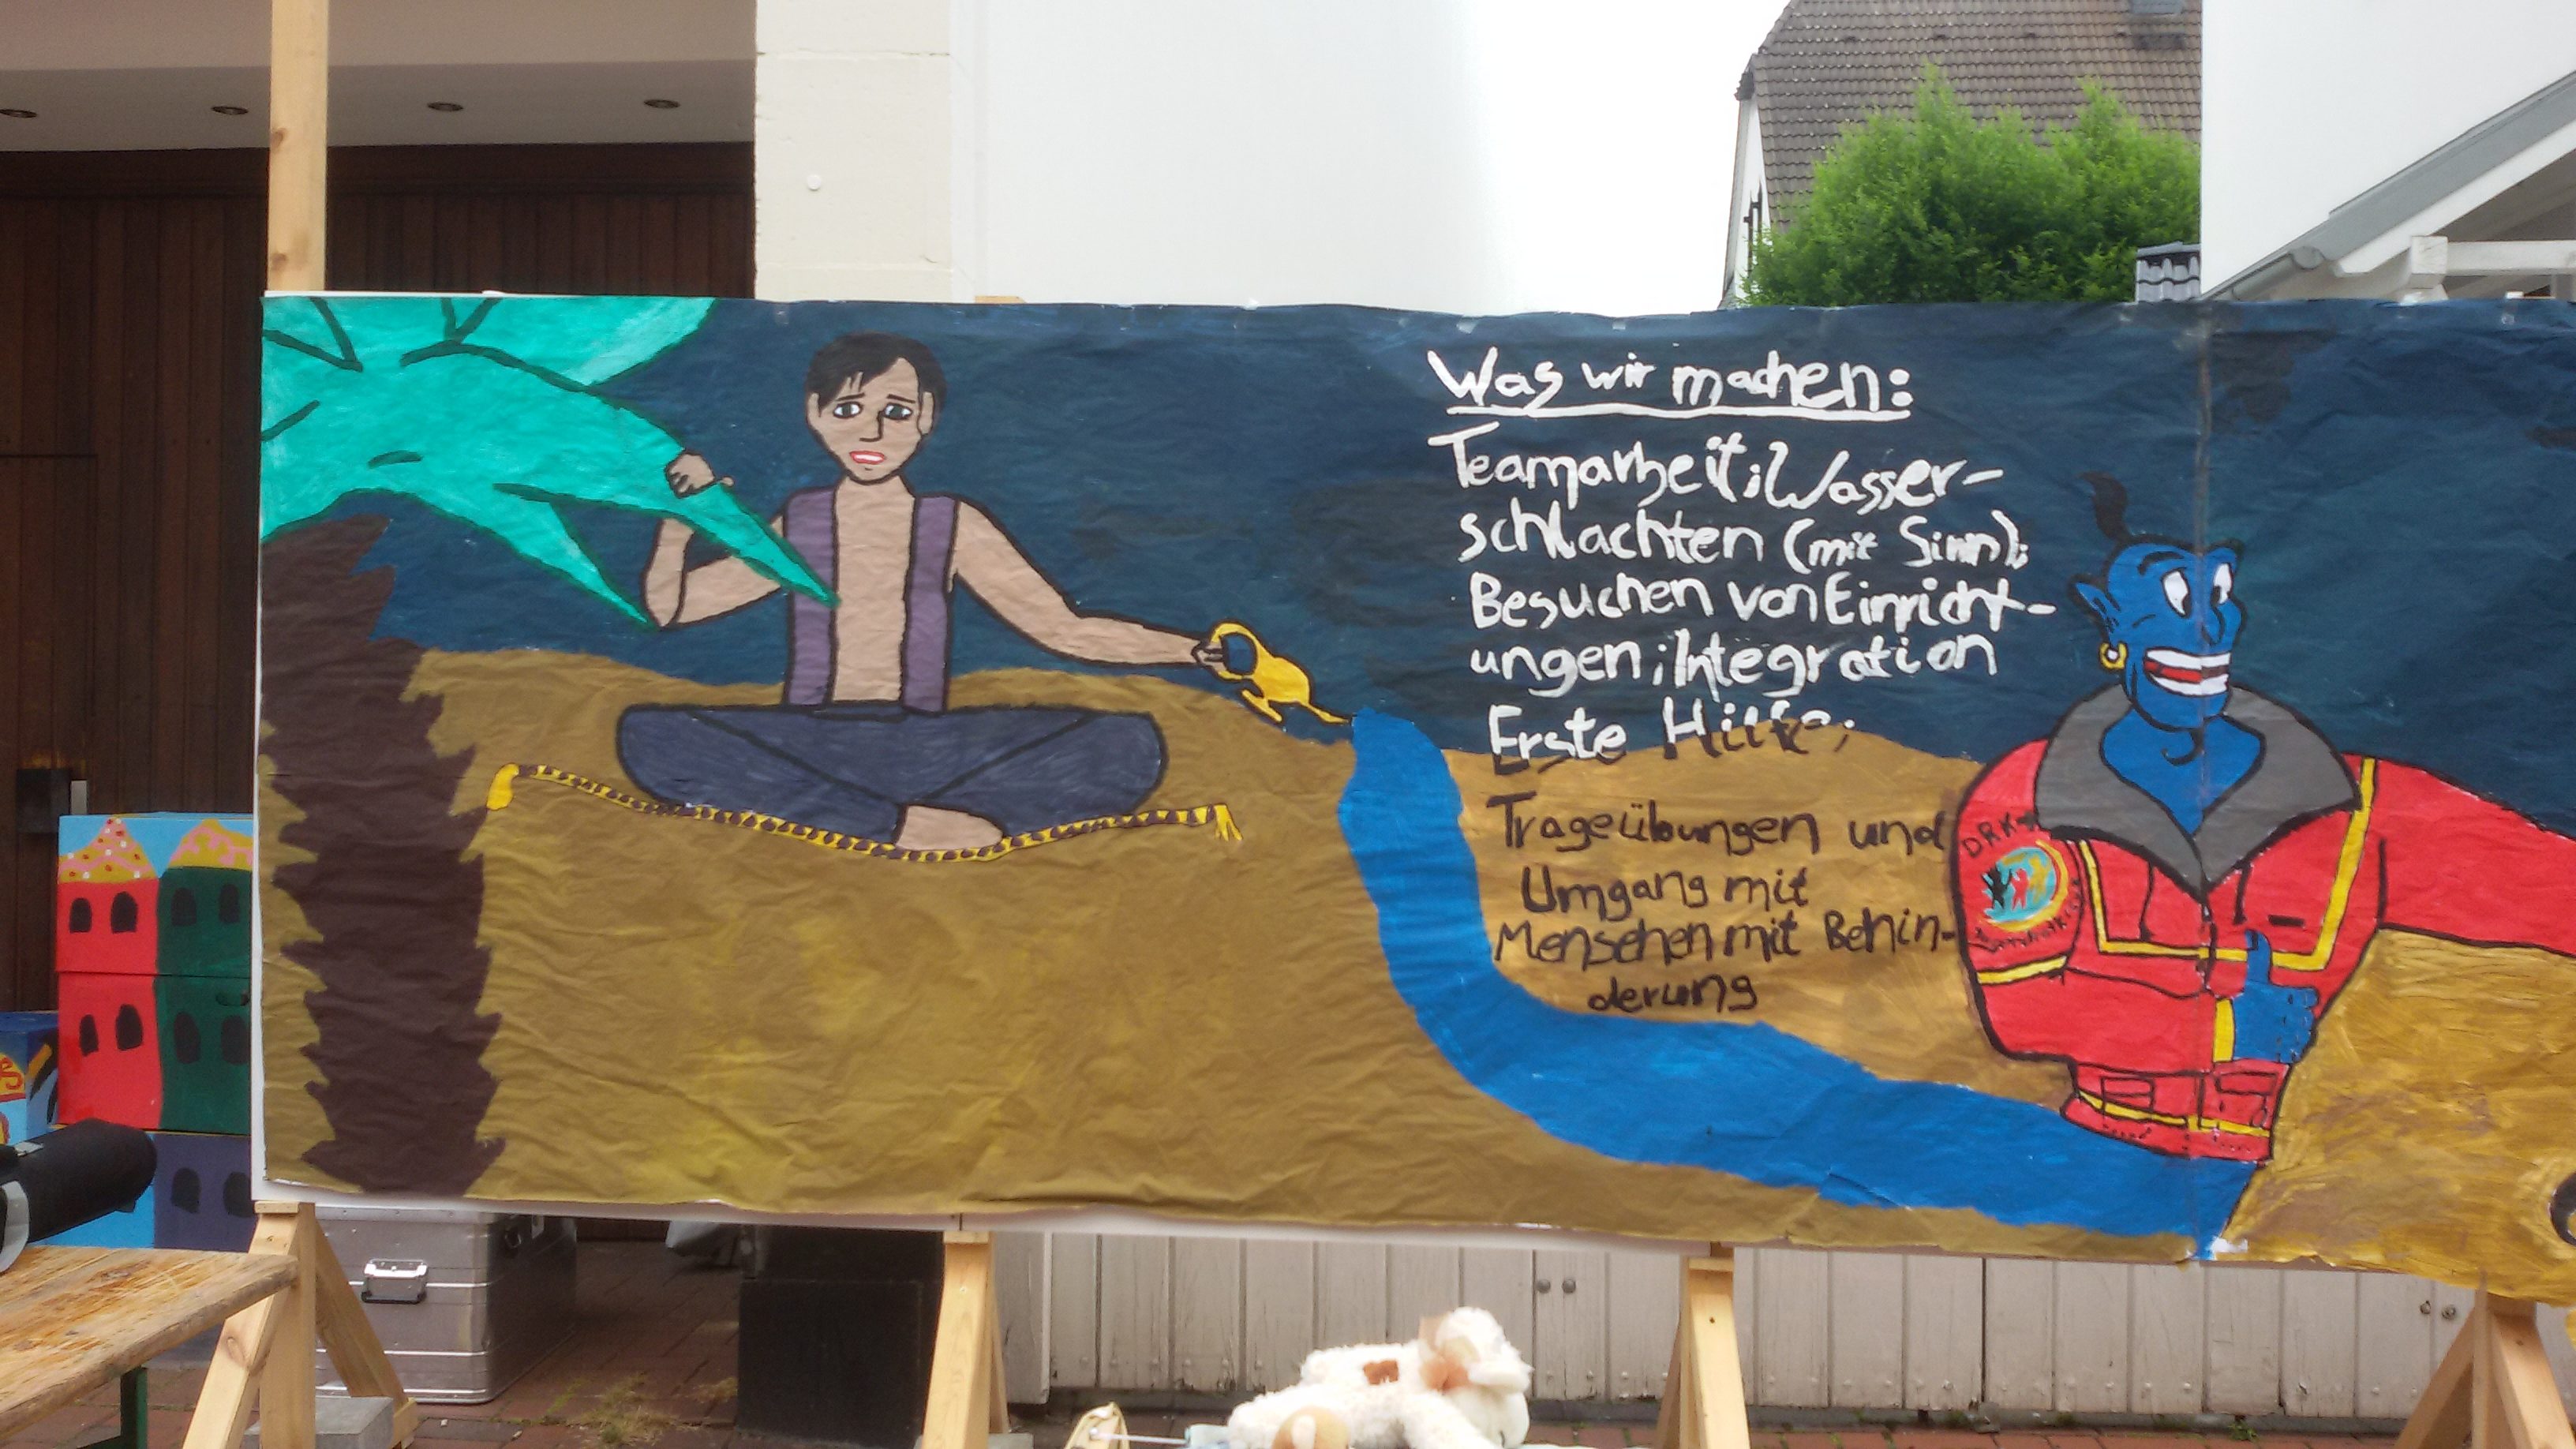 Was wir machen:
Teamarbeit; Wasser-
schlachten (mit Sinn);
Besuchen von Einricht-
ungen; Integration
Erste Hilfe;
Trageübungen und
Umgang mit
Menschen mit Behin-
derung
DRK